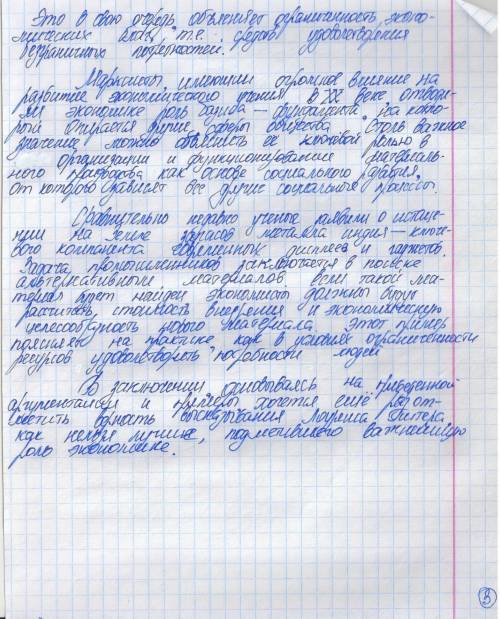 Это в свою очередь объясняет ограниченность эконо-
мических благ, т.е. средств удовлетворения
безграничных потребностей.
Марксисты, имеющии огромное влиение на
развитие экономического учения в XX веке отводи-
ли экономике роль базиса – фундамента на кото-
рый опирается другие сферы общества. Столь важное
значение можно объяснить ее ключевой ролью в
организации и функционировании материаль-
ного производства как основе социального развития,
от которого зависят все другие социальные процессы.
Сравнительно недавно ученые заявили о истоще-
нии на земле запасов металла индия – ключе-
вого компонента современных дисплеев и гаджетов.
Задача промышленников заключается в поиске
альтернативных материалов, если такой ма-
териал будет найден экономисты должны будут
рассчитать стоимость внедрения и экономическую
целесообразность нового материала. Этот пример
поясняет на практике как в условиях ограниченности
ресурсов удовлетворить потребности людей
В заключении основываясь на приведенной
аргументации и примеры хочется ещё раз от-
метить верность высказывания Лоуренса Питера
как нельзя лучше, подметившего важнейшую
роль экономике.
В